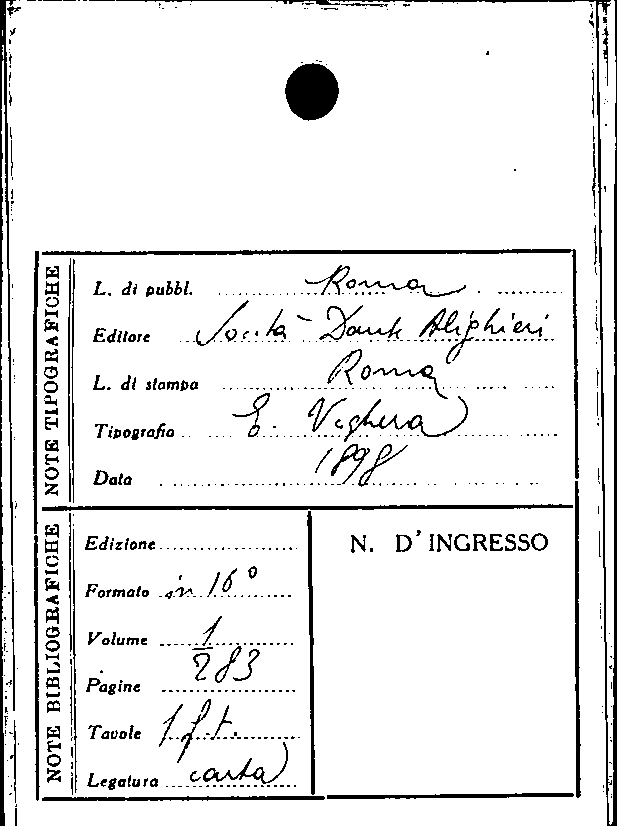 NOTE TIPOGRAFICHE
L. di pubbl. Roma
Editore Società Dante Alighieri
L. di stampa Roma
Tipografia E. Voghera
Data 1898
NOTE BIBLIOGRAFICHE
Edizione
Formato in 16°
Volume 1
Pagine 283
Tavole 1 f.t.
Legatura carta
N. D'INGRESSO